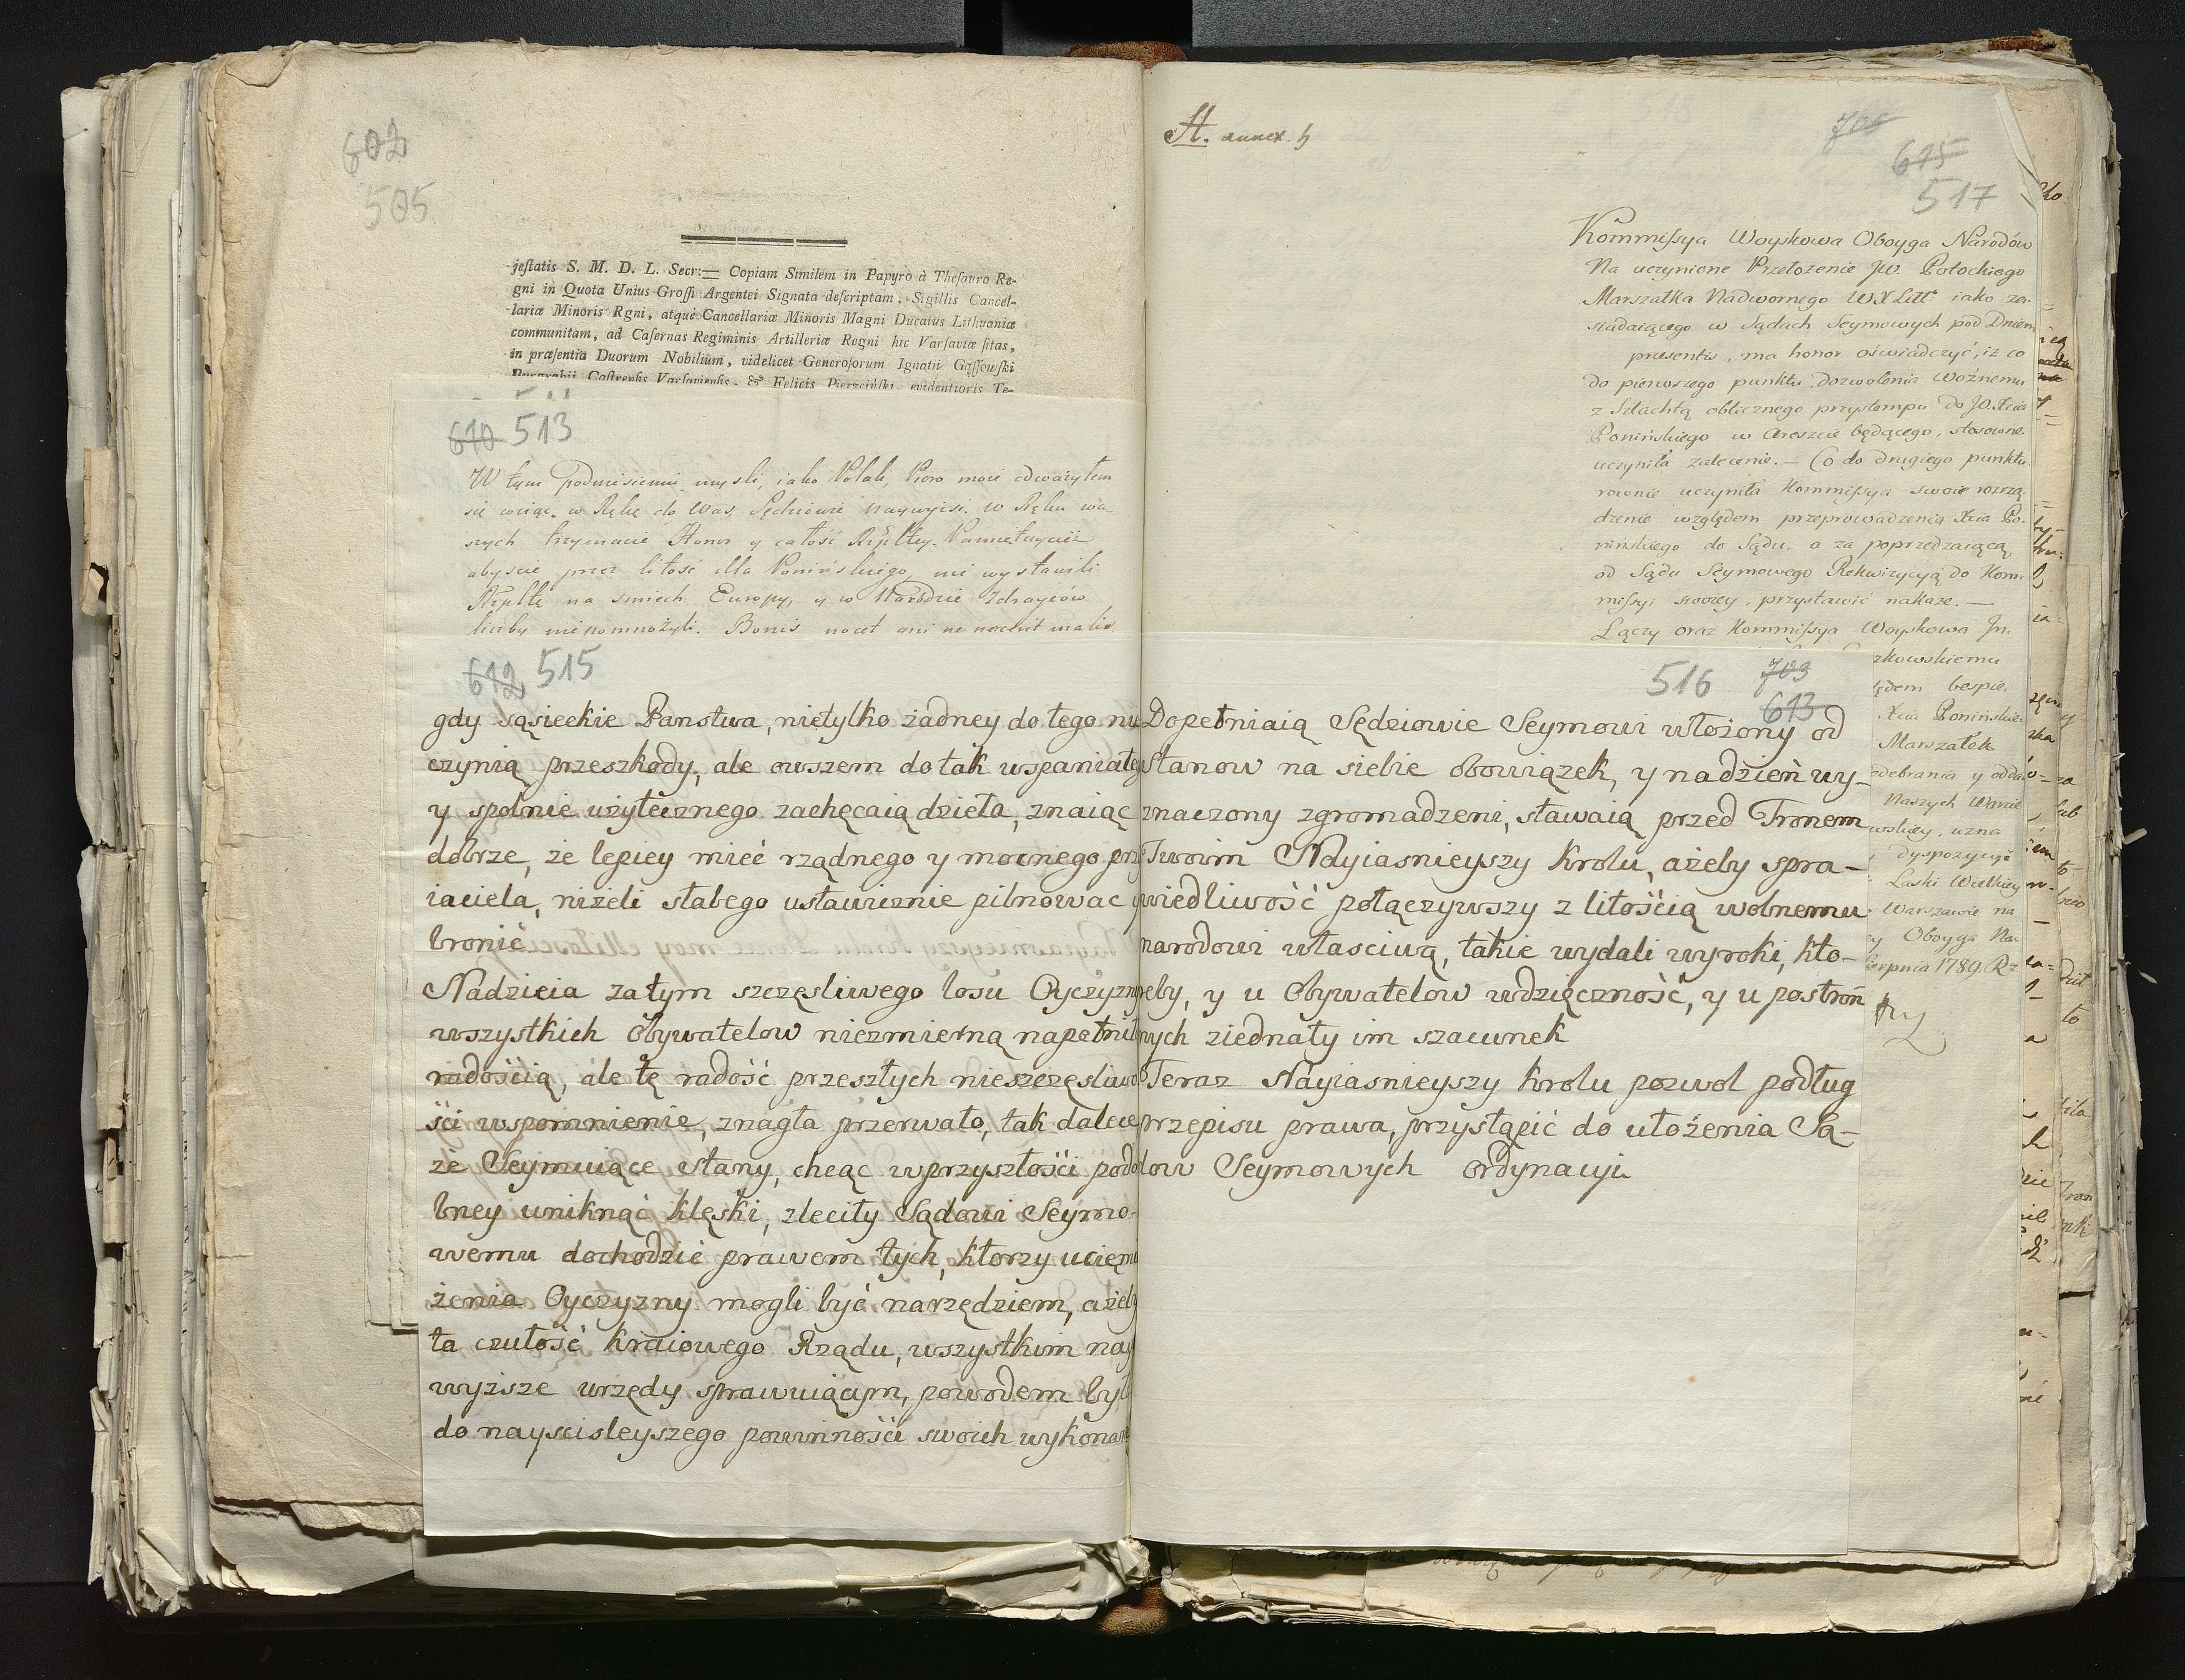 602
505
jeſtatis S. M. D. L. Secr:= Copiam Similem in Papyro à Theſauro Re-
gni in Quota Unius Groſſi Argentei Signata deſcriptam, Sigillis Cancel-
lariæ Minoris Rgni, atque Cancellariæ Minoris Magni Ducatus Lithuaniæ
communitam, ad Caſernas Regiminis Artilleriæ Regni hic Varſaviæ ſitas,
in præſentia Duorum Nobilium, videlicet Generoſorum Ignatii Gąſſowſki
Burgrabii Caſtrenſis Varſavienſis, & Felicis Pierzciński evidentioris Te-
610 513
W tym Podniesieniu mysli, iako Polak, Pioro moie odważyłem
się wziąć w Rękę do Was Sędziowie naywyżsi. w Ręku wa-
szych trzymacie Honor y całość Rzpltey. Pamiętaycież
abyscie przez litość dla Ponińskiego nie wystawili
Rzpltę na smiech Europy, y w Narodzie Zdraycow
liczby niepomnożyli. Bonis nocet
612 515
gdy sąsieckie Panstwa, nietylko żadney do tego nie
czynią przeszkody, ale owszem do tak wspaniałego
y spolnie użytecznego zachęcaią dzieła, znaiąc
dobrze, że lepiey mieć rządnego y mocnego przy
iaciela, niżeli słabego ustawicznie pilnowac y
bronić
Nadzieia zatym szczęsliwego losu Oyczyzny
wszystkich Obywatelow niezmierną napełniła
radością, ale tę radość przeszłych nieszczęsliwo
ści wspomnienie, znagła przerwało, tak dalece
że Seymuiące stany, chcąc wprzyszłości podo
bney uniknąć klęski, zleciły Sądowi Seymo-
wemu dochodzić prawem tych, ktorzy uciemię
żenia Oyczyzny mogli być narzędziem, ażeby
ta czułość kraiowego Rządu, wszystkim nay
wyższe urzędy sprawuiącym, powodem była
do nayscisleyszego powinności swoich wykonania
A. annex. h
705
615
517
Kommiſsya Woyskowa Oboyga Narodów
Na uczynione Przełożenie JW. Potockiego
Marszałka Nadwornego WXLitt: iako za-
siadaiącego w Sądach Seymowych pod Dniem
presentis, ma honor oświadczyć, iż co
do pierwszego punktu dozwolenia Woźnemu
z Szlachtą oblicznego przystempu do JO. Xcia
Ponińskiego w Areszcie będącego, stosowne
uczyniła zalecenie. — Co do drugiego punktu
rownie uczyniła Kommiſsya swoie rozrzą-
dzenie względem przeprowadzenia Xcia Po-
nińskiego do Sądu, a za poprzedzaiącą
od Sądu Seymowego Rekwizycyą do Kom-
miſsyi swoiey, przystawić nakaże. —
Łączy oraz Kommiſsya Woyskowa In-
zkowskiemu
ędem bespie-
Xcia Ponińskie-
Marszałek
odebrania y odda
Naszych Warcie
wskiey, uzna
dyspozycyi
Laski Wielkiey
Warszawie na
ey Oboyga Na-
Sierpnia 1789 R:
516 703
613
Dopełniaią Sędziowie Seymowi włożony od
Stanow na siebie obowiązek, y na dzień wy-
znaczony zgromadzeni, stawaią przed Tronem
Twoim Nayiasnieyszy Krolu, ażeby spra-
wiedliwość połączywszy z litością wolnemu
narodowi własciwą, takie wydali wyroki, kto-
reby, y u Obywatelow wdzięczność, y u postroń
nych ziednały im szacunek
Teraz Nayiasnieyszy Krolu pozwol podług
przepisu prawa, przystąpić do ułożenia Są-
dow Seymowych ordynacyi